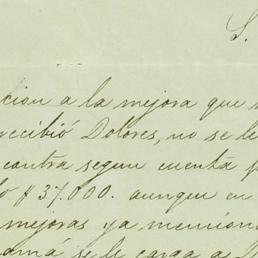 S.
cion a la mejora que
recibió Dolores, no se le
contra segun cuenta
$37.000. aunque en
mejoras ya mencion
amá se le carga a